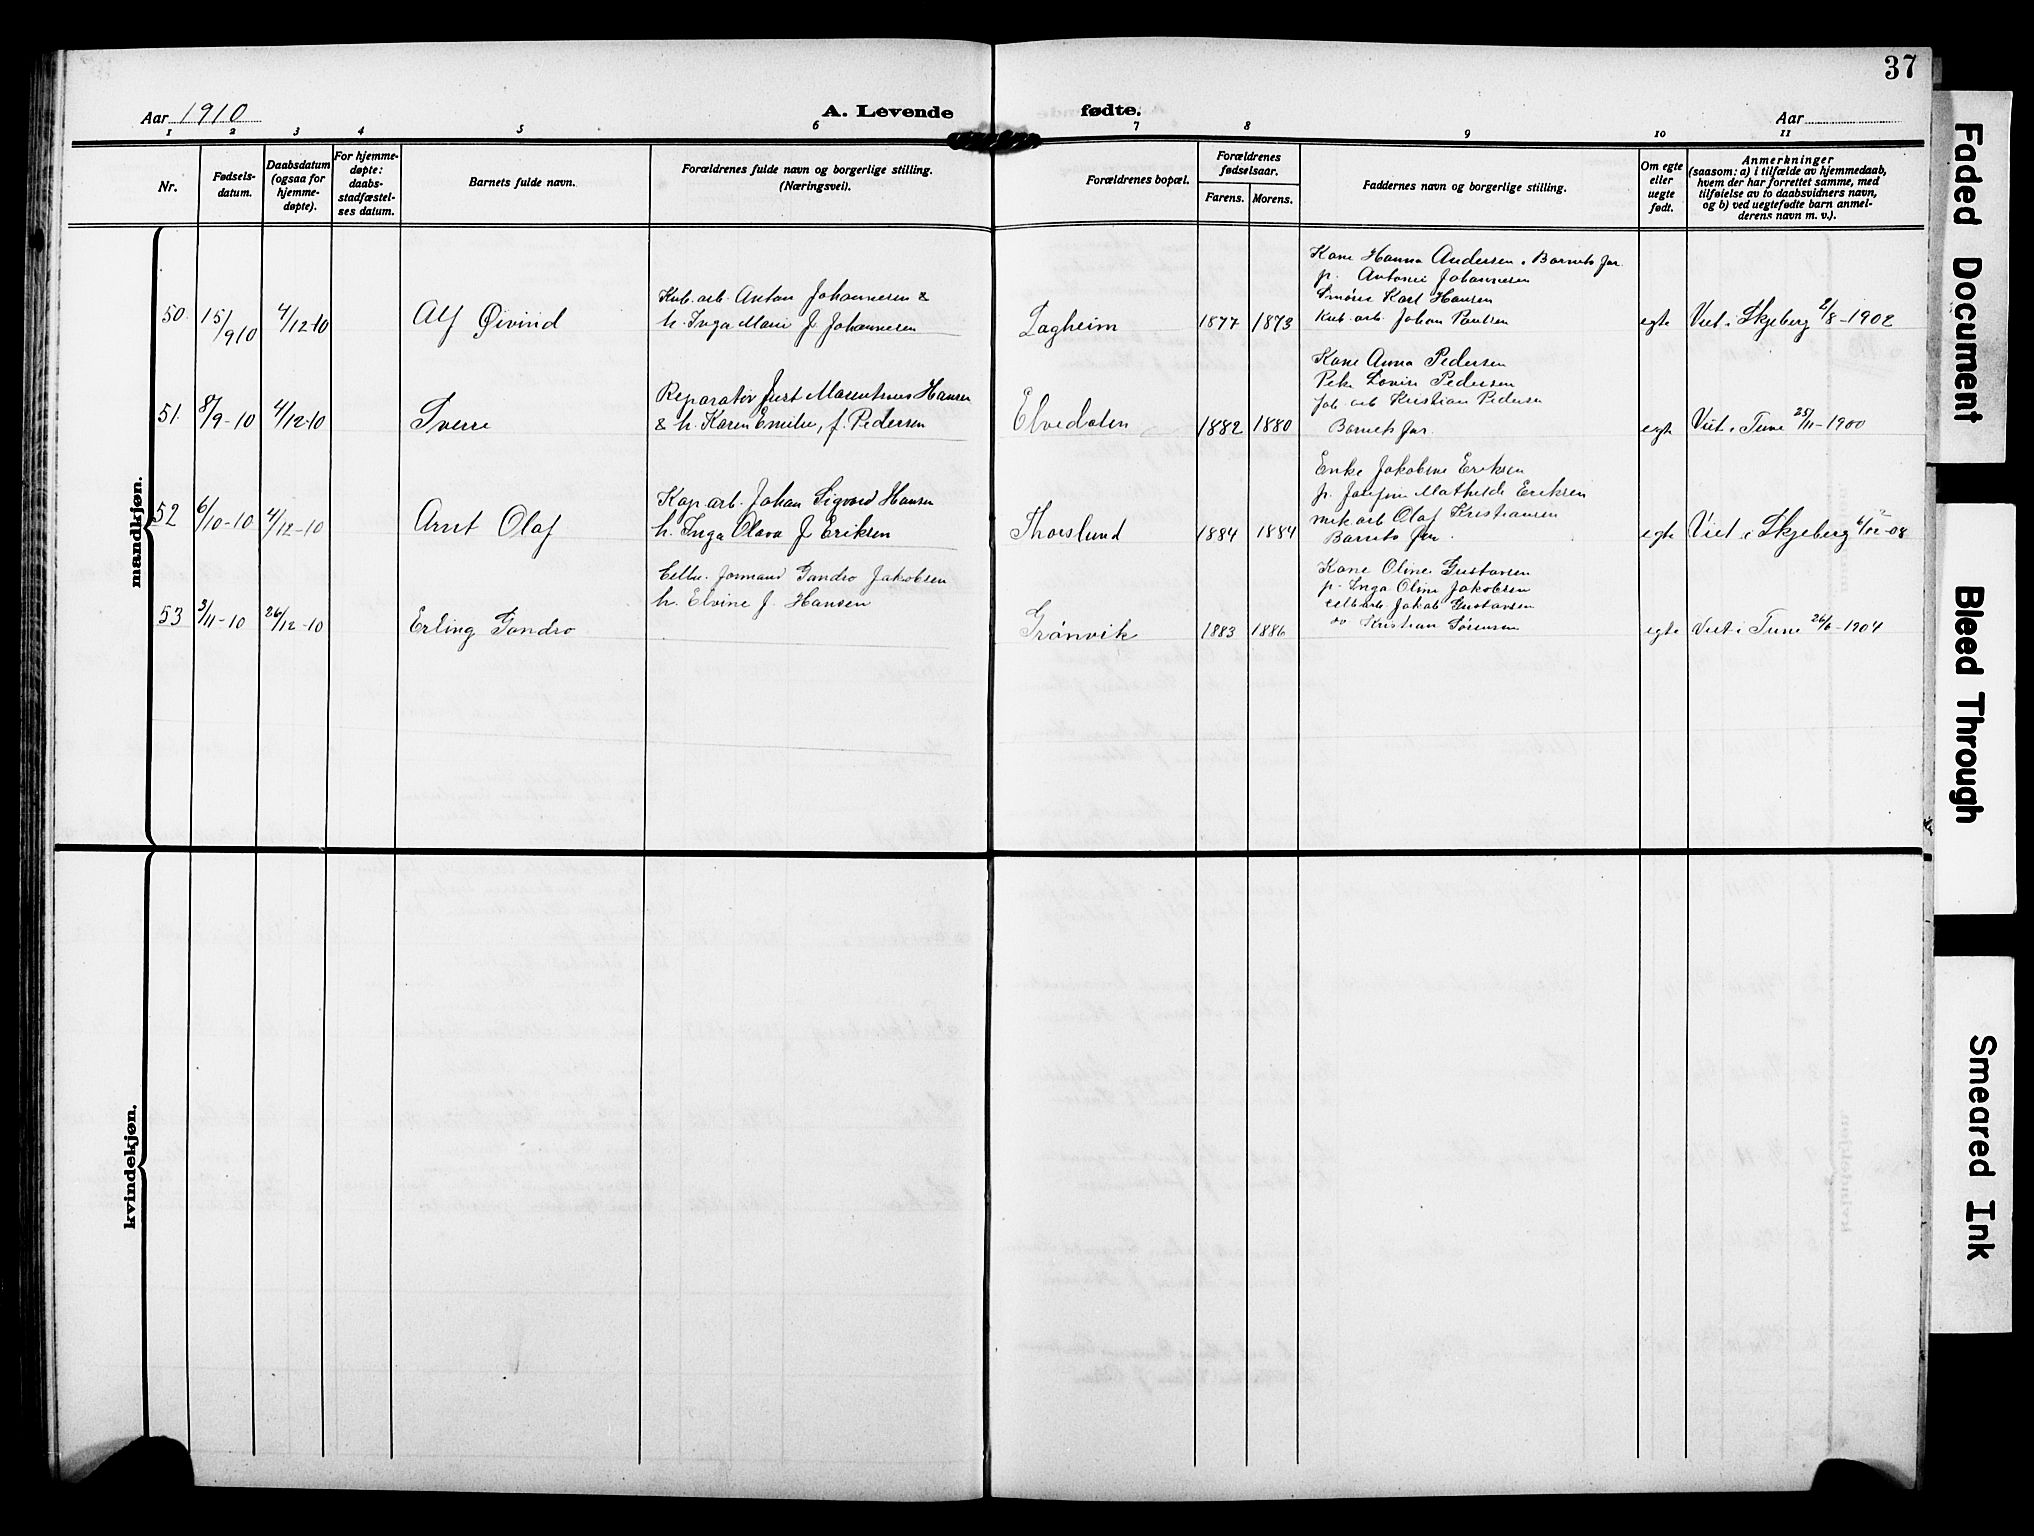 37
Aar 1910
A. Levende fødte.
Aar
1 2 3 4 5 6 7 8 9 10 11
Nr.
Fødsels-
datum.
Daabsdatum
(ogsaa for
hjemme-
døpte).
For hjemme-
døpte:
daabs-
stadfæstel-
ses datum.
Barnets fulde navn.
Forældrenes fulde navn og borgerlige stilling.
(Næringsvei).
Forældrenes bopæl.
Forældrenes
fødselsaar.
Farens. Morens.
Faddernes navn og borgerlige stilling.
Om egte
eller
uegte
født.
Anmerkninger
(saasom: a) i tilfælde av hjemmedaab,
hvem der har forrettet samme, med
tilføielse av to daabsvidners navn,
og b) ved uegtefødte barn anmel-
derens navn m. v.).
mandkjøn.
50 15/910 4/12-10
Alf Øivind
Kub. arb. Anton Johannesen &
h. Inga Marie f Johannesen
Lagheim
1877 1873
Kone Hanna Andersen. Barnets far.
p. Antonie Johannesen
Smører Karl Hansen
Kub. arb. Johan Paulsen
egte
Viet i Skjeberg 2/8-1902
51. 8/9-10 4/12-10
Sverre
Reparatør Just Hansen
& h. Karen Emilie, f. Pedersen
Elvedalen
1882 1880
Kone Anna Pedersen
Pike Lovise Pedersen
fab. arb Kristian Pedersen
Barnets far.
egte
Viet i Tune 25/11-1900
52 6/10-10 4/12-10
Arnt Olaf
Kap. arb. Johan Sigvard Hansen
h. Inga Olava f Eriksen
Thorslund
1884 1884
Enke Jakobine Eriksen
p. Josefine Mathilde Eriksen
mek arb Olaf Kristiansen
Barnets far.
egte
Viet i Skjeberg -08
53 3/11-10 26/12-10
Erling Gandro
Cellu. formand Gandro Jakobsen
h. Elvine f. Hansen
Grønvik
1883 1886
Kone Oline Gustavsen
p. Inga Oline Jakobsen
cellarb. Jakob Gustavsen
do Kristian Sørensen
egte
Viet i Tune 26/6-1904
kvindekjøn.
Faded Document
Bleed Through
Smeared Ink